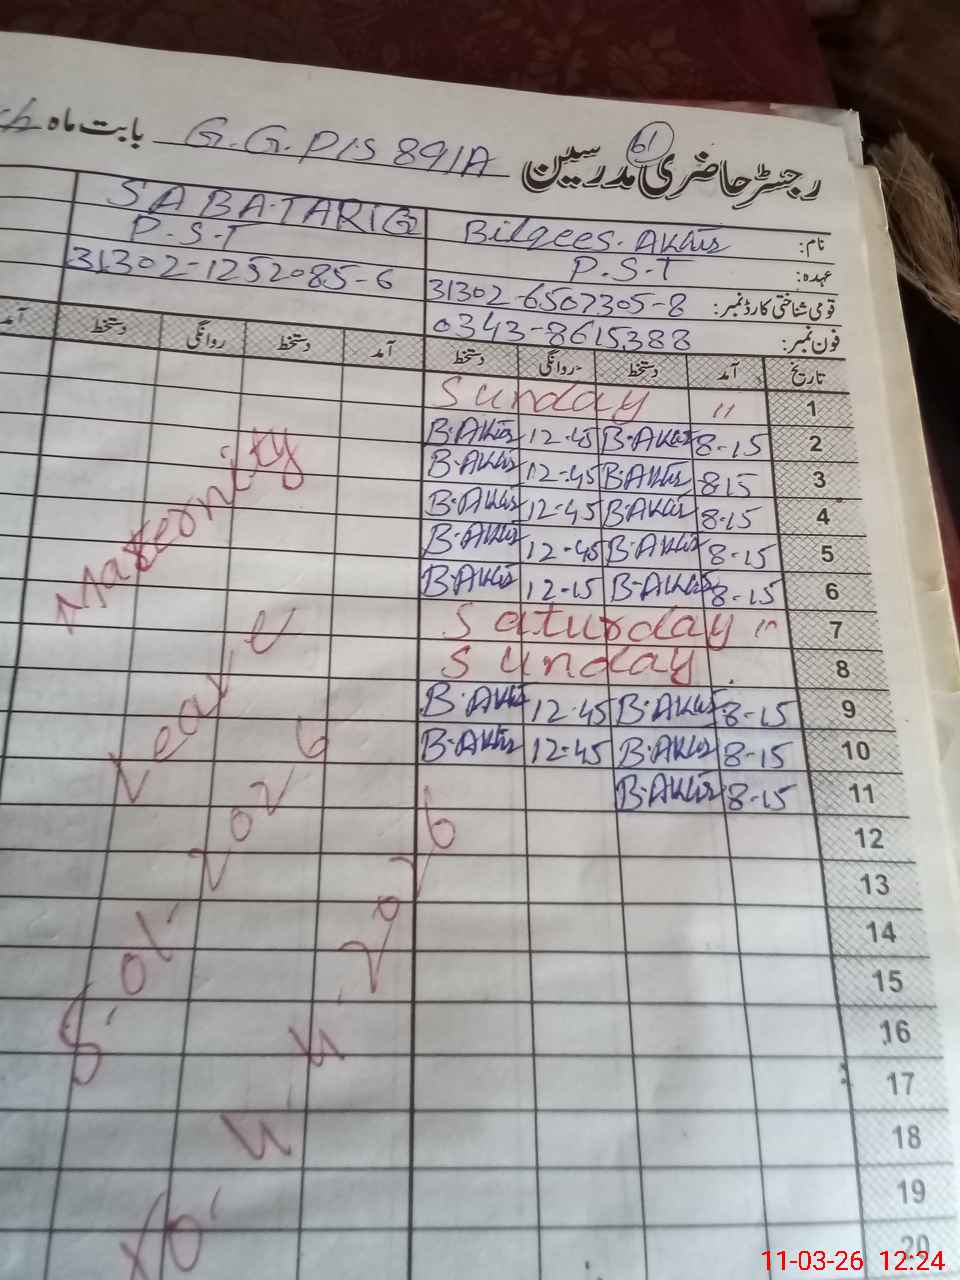 61
رجسٹر حاضری مدرسین G.G.P/S 89/A بابت ماہ
نام: Bilqees. Akhtar SABA TARIQ
عہدہ: P.S.T P.S.T
قومی شناختی کارڈ نمبر: 31302-6507305-8 31302-1252085-6
فون نمبر: 0343-8615388
تاریخ آمد دستخط روانگی دستخط آمد دستخط روانگی دستخط آمد
1 " Sunday
2 8-15 B.Akhtar 12-45 B.Akhtar
3 8 15 B.Akhtar 12-45 B.Akhtar
4 8-15 B.Akhtar 12-45 B.Akhtar
5 8-15 B.Akhtar 12-45 B.Akhtar
6 8-15 B.Akhtar 12-15 B.Akhtar
7 Saturday "
8 Sunday.
9 8-15 B.Akhtar 12-45 B.Akhtar
10 8-15 B.Akhtar 12-45 B.Akhtar
11 8-15 B.Akhtar
12
13
14
15
16
17
18
19
20
Maternity
Leave
2026
2026
11-03-26 12:24